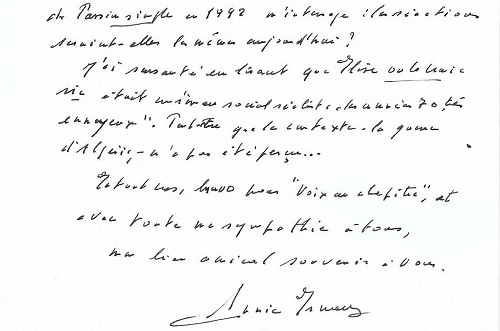 de Passion simple en 1992 m'interroge : les réactions
seraient-elles les mêmes aujourd'hui ?
J'ai sursauté en lisant que Elise ou la vraie
vie était un roman social réaliste des années 70 "très
ennuyeux". Peut-être que le contexte - la guerre
d'Algérie - n'a pas été perçu...
En tout cas, bravo pour "Voix au chapitre", et
avec toute ma sympathie à tous,
mon bien amical souvenir à vous.
Annie Ernaux